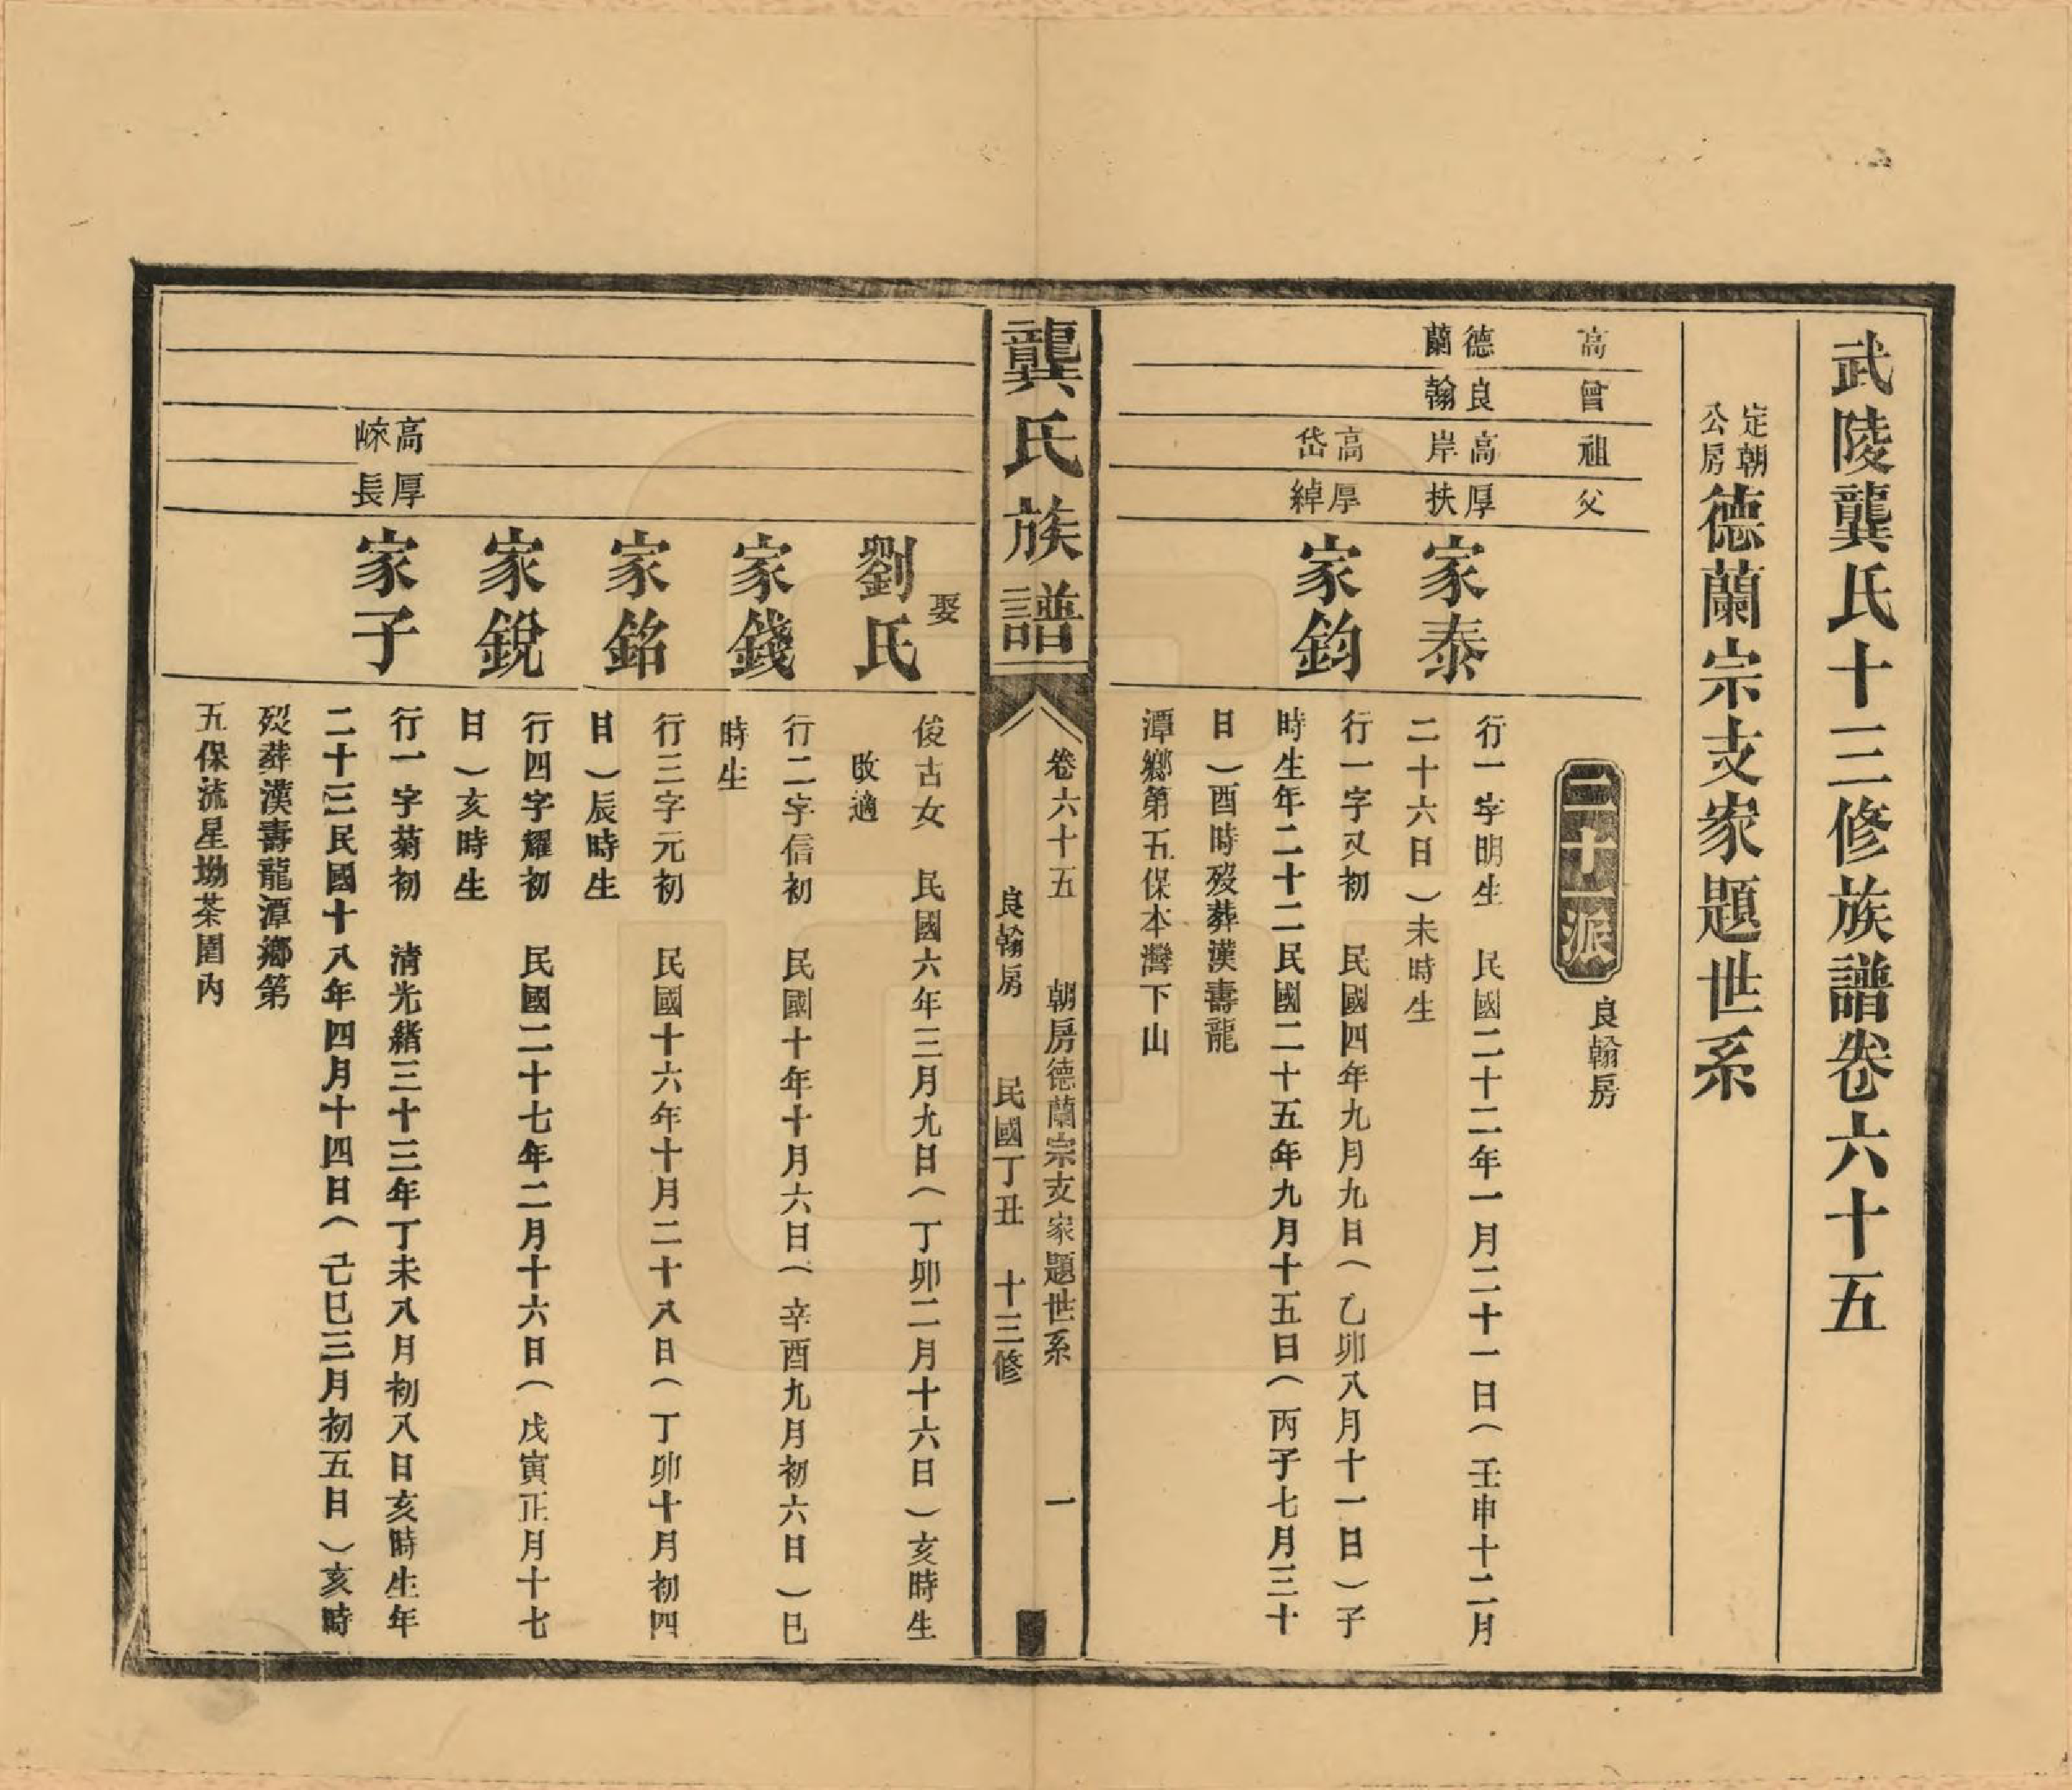 武陵龔氏十三修族譜卷六十五
定朝公房德蘭宗支家題世系
高
曾
祖
父
二十一派
良翰房
德蘭
良翰
高岸
厚扶
家泰
行一字明生　民國二十二年一月二十一日（壬申十二月
二十六日）未時生
高岱
厚綽
家鈞
行一字又初　民國四年九月九日（乙卯八月十一日）子
時生年二十二民國二十五年九月十五日（丙子七月三十
日）酉時歿葬漢壽龍
潭鄉第五保本灣下山
龔氏族譜
卷六十五　朝房德蘭宗支家題世系　一
良翰房　民國丁丑　十三修
娶
劉氏
俊古女　民國六年三月九日（丁卯二月十六日）亥時生
改適
家錢
行二字信初　民國十年十月六日（辛酉九月初六日）巳
時生
家銘
行三字元初　民國十六年十月二十八日（丁卯十月初四
日）辰時生
家銳
行四字耀初　民國二十七年二月十六日（戊寅正月十七
日）亥時生
高崍
厚長
家子
行一字菊初　清光緒三十三年丁未八月初八日亥時生年
二十三民國十八年四月十四日（己巳三月初五日）亥時
歿葬漢壽龍潭鄉第
五保流星坳茶園內